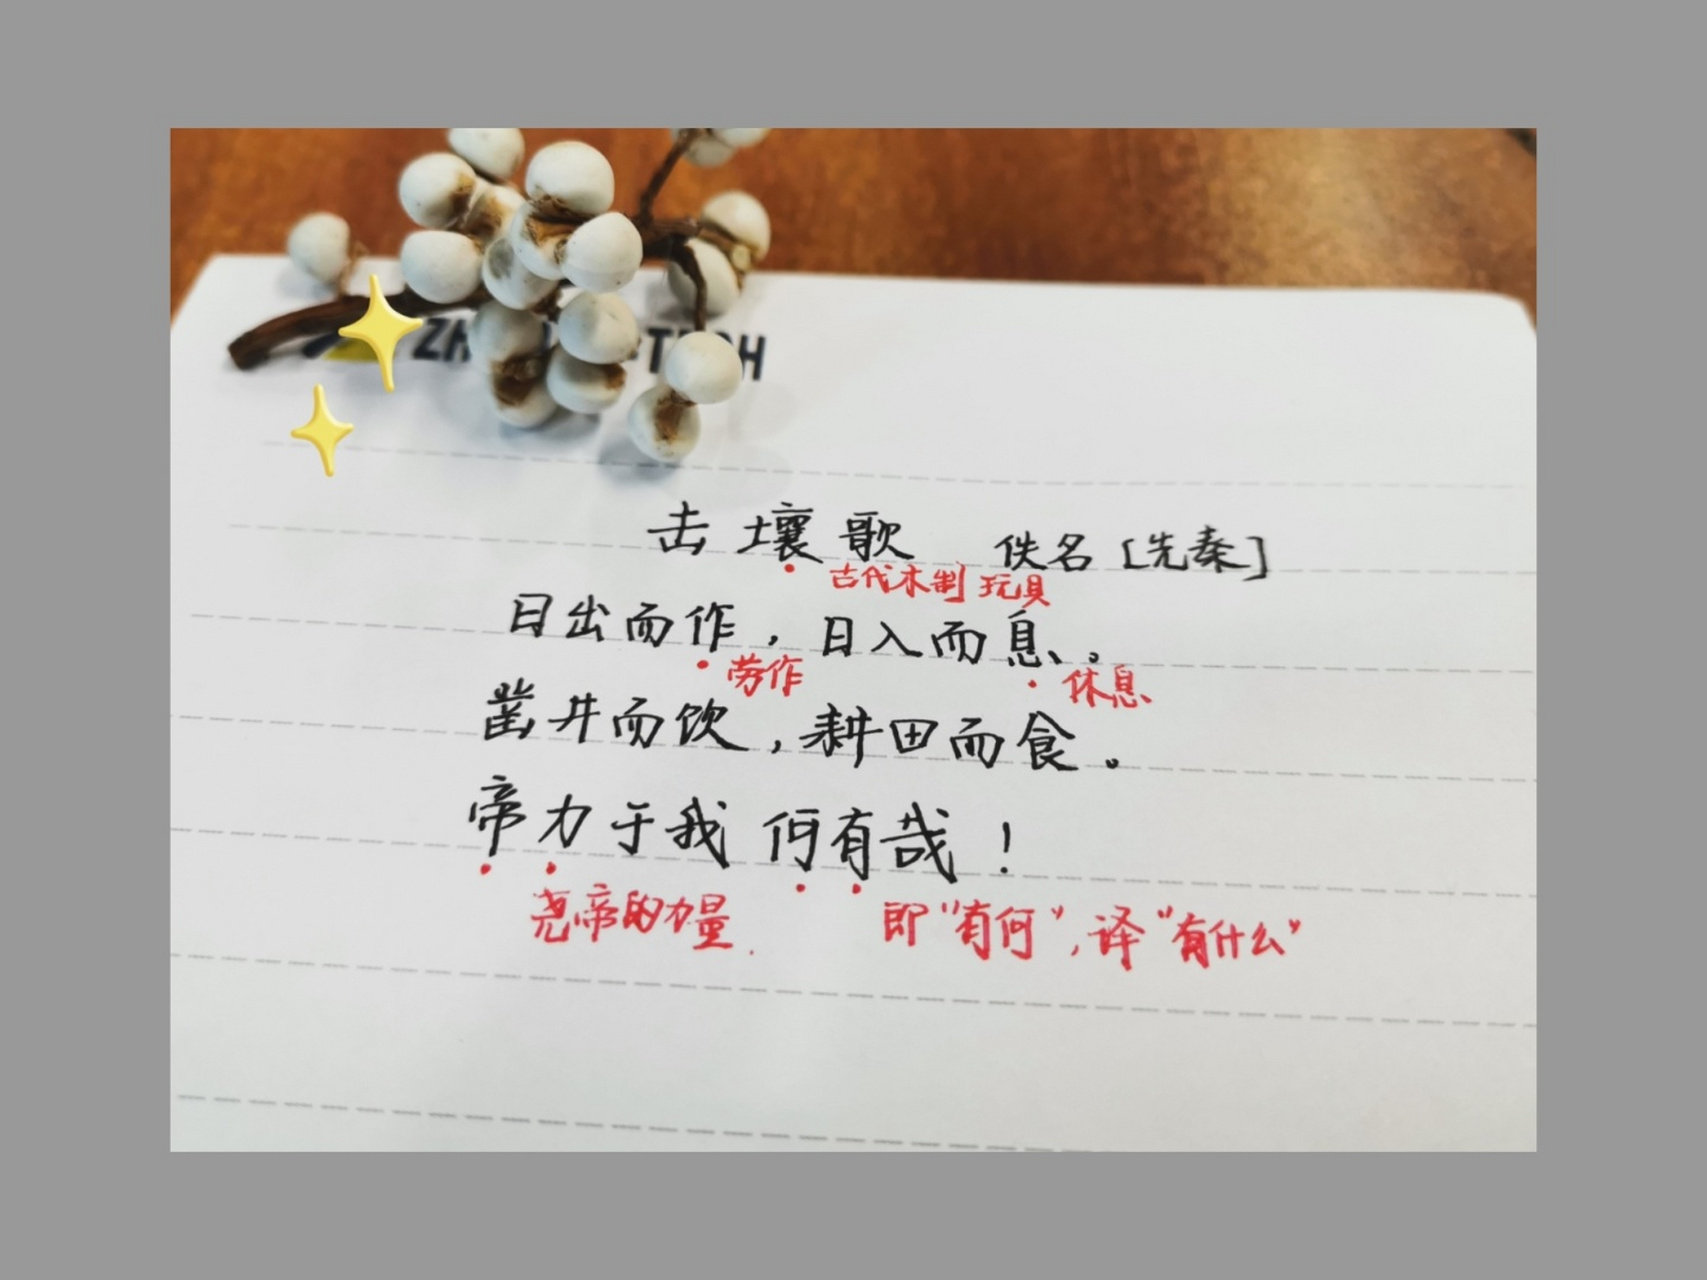 击壤歌 佚名[先秦]
古代木制玩具
日出而作,日入而息。
劳作 休息
凿井而饮,耕田而食。
帝力于我何有哉!
尧帝的力量. 即"有何",译"有什么"